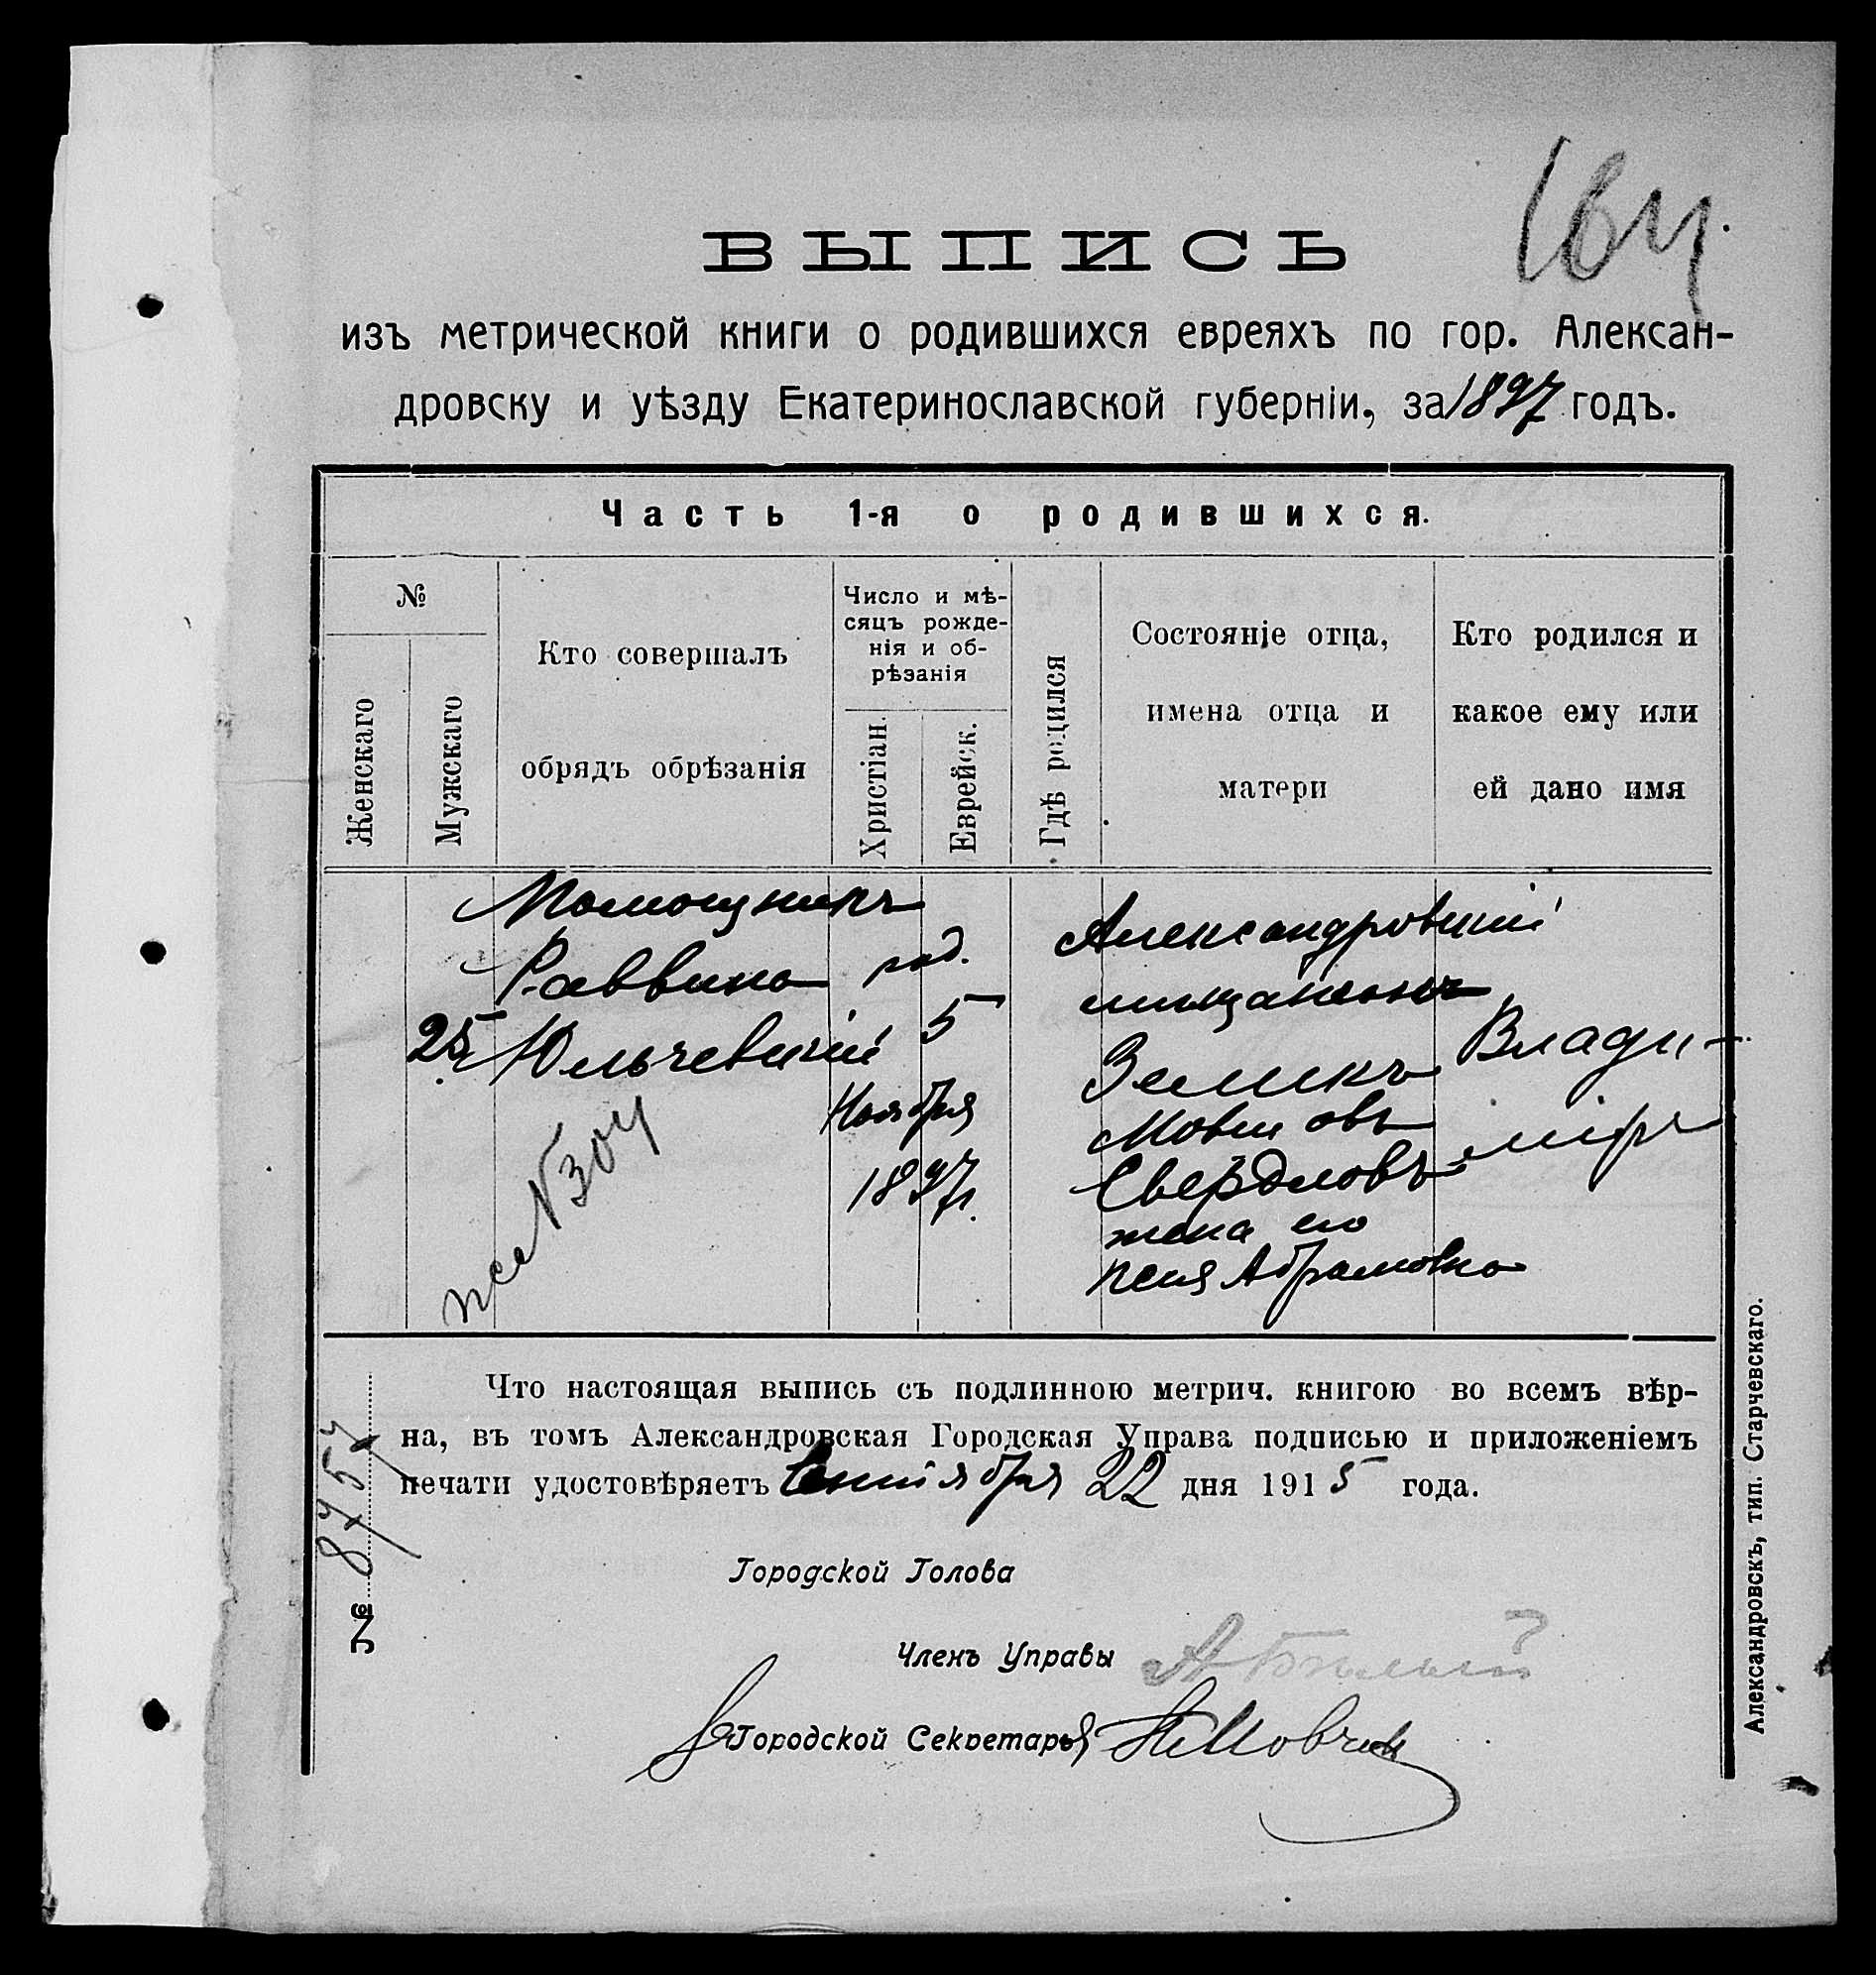 ВЫПИСЬ
изъ метрической книги о родившихся евреяхъ по гор. Алексан-
дровску и уѣзду Екатеринославской губерніи, за 1897 годъ.
Часть 1-я о родившихся.
№
Женскаго
Мужскаго
Кто совершалъ
обрядъ обрѣзанія
Число и мѣ-
сяцъ рожде-
нія и об-
рѣзанія
Христіан.
Еврейск.
Гдѣ родился
Состояніе отца,
имена отца и
матери
Кто родился и
какое ему или
ей дано имя
25
Помощникъ
Раввина
Юльчевскій
род.
5
Ноября
1897г.
Александровскій
мѣщанинъ
Зеликъ
Мовшовъ
Свердловъ
жена его
Песя Абрамовна
Влади-
міръ
Что настоящая выпись съ подлинною метрич. книгою во всемъ вѣр-
на, въ томъ Александровская Городская Управа подписью и приложеніемъ
печати удостовѣряетъ Сентября 22 дня 1915 года.
№ 8757
Городской Голова
Членъ Управы
Городской Секретарь
Александровскъ, тип. Старчевскаго.